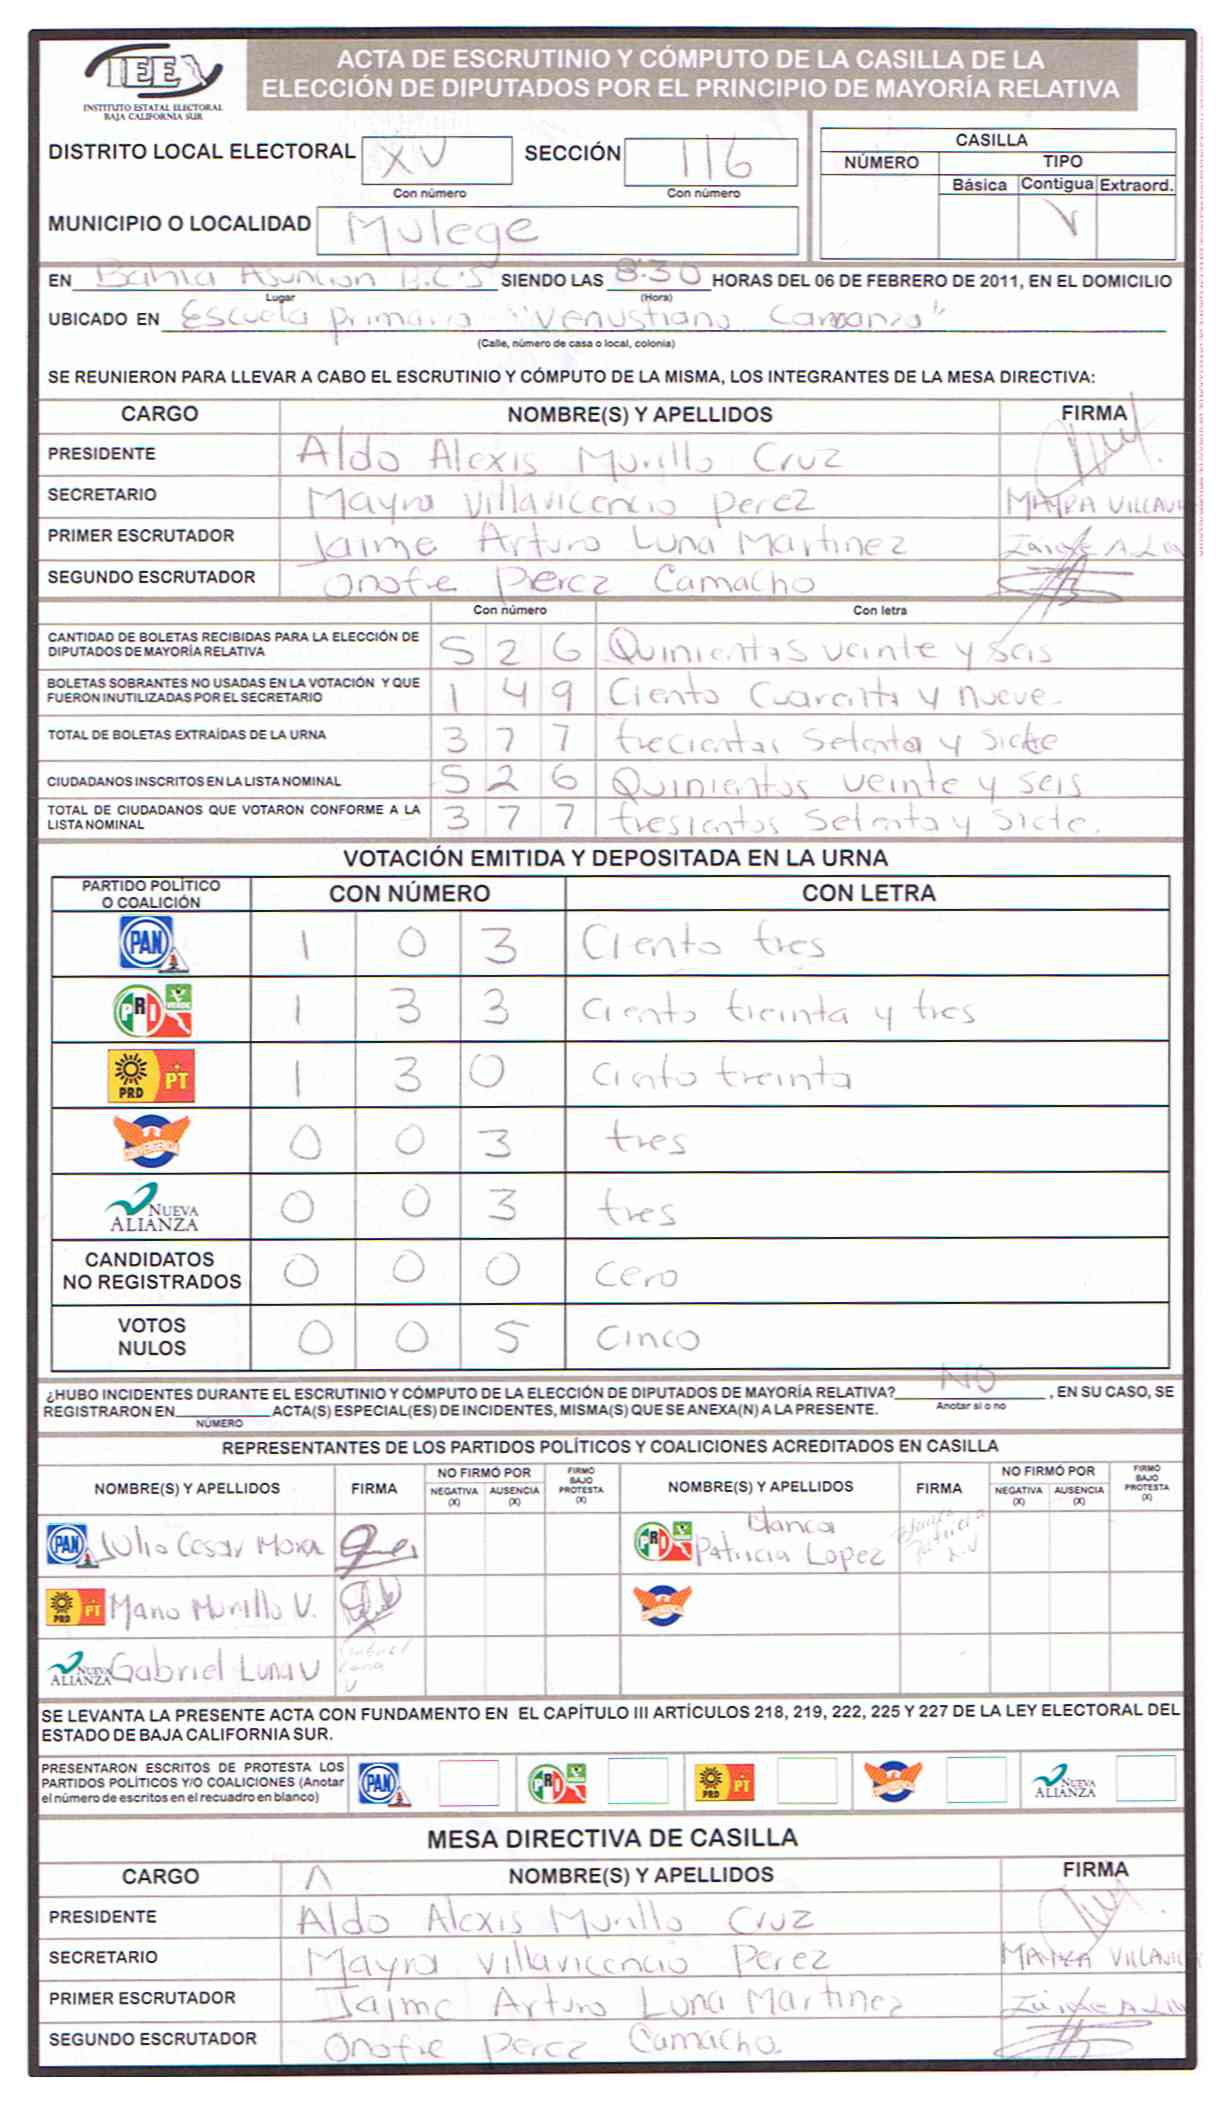 IEE
INSTITUTO ESTATAL ELECTORAL
BAJA CALIFORNIA SUR
ACTA DE ESCRUTINIO Y CÓMPUTO DE LA CASILLA DE LA
ELECCIÓN DE DIPUTADOS POR EL PRINCIPIO DE MAYORÍA RELATIVA
DISTRITO LOCAL ELECTORAL XV SECCIÓN 116
Con número Con número
MUNICIPIO O LOCALIDAD Mulege
CASILLA
NÚMERO TIPO
Básica Contigua Extraord.
EN Bahia Asuncion B.C.S SIENDO LAS 8:30 HORAS DEL 06 DE FEBRERO DE 2011, EN EL DOMICILIO
Lugar (Hora)
UBICADO EN Escuela primaria "Venustiano Carranza"
(Calle, número de casa o local, colonia)
SE REUNIERON PARA LLEVAR A CABO EL ESCRUTINIO Y CÓMPUTO DE LA MISMA, LOS INTEGRANTES DE LA MESA DIRECTIVA:
CARGO NOMBRE(S) Y APELLIDOS FIRMA
PRESIDENTE Aldo Alexis Murillo Cruz
SECRETARIO Mayra Villavicencio Perez MAYRA VILLAVI
PRIMER ESCRUTADOR Jaime Arturo Luna Martinez
SEGUNDO ESCRUTADOR Onofre Perez Camacho
Con número Con letra
CANTIDAD DE BOLETAS RECIBIDAS PARA LA ELECCIÓN DE
DIPUTADOS DE MAYORÍA RELATIVA 5 2 6 Quinientas veinte y seis
BOLETAS SOBRANTES NO USADAS EN LA VOTACIÓN Y QUE
FUERON INUTILIZADAS POR EL SECRETARIO 1 4 9 Ciento Cuarenta y nueve.
TOTAL DE BOLETAS EXTRAÍDAS DE LA URNA 3 7 7 trecientas Setenta y Siete
CIUDADANOS INSCRITOS EN LA LISTA NOMINAL 5 2 6 Quinientos veinte y seis
TOTAL DE CIUDADANOS QUE VOTARON CONFORME A LA
LISTA NOMINAL 3 7 7 tresientos Setenta y Siete.
VOTACIÓN EMITIDA Y DEPOSITADA EN LA URNA
PARTIDO POLÍTICO
O COALICIÓN CON NÚMERO CON LETRA
PAN 1 0 3 Ciento tres
PRI VERDE 1 3 3 Ciento treinta y tres
PRD PT 1 3 0 Ciento treinta
CONVERGENCIA 0 0 3 tres
NUEVA
ALIANZA 0 0 3 tres
CANDIDATOS
NO REGISTRADOS 0 0 0 Cero
VOTOS
NULOS 0 0 5 Cinco
¿HUBO INCIDENTES DURANTE EL ESCRUTINIO Y CÓMPUTO DE LA ELECCIÓN DE DIPUTADOS DE MAYORÍA RELATIVA? NO, EN SU CASO, SE
Anotar si o no
REGISTRARON EN ACTA(S) ESPECIAL(ES) DE INCIDENTES, MISMA(S) QUE SE ANEXA(N) A LA PRESENTE.
NÚMERO
REPRESENTANTES DE LOS PARTIDOS POLÍTICOS Y COALICIONES ACREDITADOS EN CASILLA
NOMBRE(S) Y APELLIDOS FIRMA NO FIRMÓ POR NEGATIVA (X) AUSENCIA (X) FIRMÓ BAJO PROTESTA (X) NOMBRE(S) Y APELLIDOS FIRMA NO FIRMÓ POR NEGATIVA (X) AUSENCIA (X) FIRMÓ BAJO PROTESTA (X)
PAN Julio Cesar Mora PRI Blanca Patricia Lopez
PRD PT Mario Murillo V. CONVERGENCIA
NUEVA ALIANZA Gabriel Luna V Gabriel Luna V
SE LEVANTA LA PRESENTE ACTA CON FUNDAMENTO EN EL CAPÍTULO III ARTÍCULOS 218, 219, 222, 225 Y 227 DE LA LEY ELECTORAL DEL
ESTADO DE BAJA CALIFORNIA SUR.
PRESENTARON ESCRITOS DE PROTESTA LOS
PARTIDOS POLÍTICOS Y/O COALICIONES (Anotar
el número de escritos en el recuadro en blanco) PAN PRI PRD PT CONVERGENCIA NUEVA ALIANZA
MESA DIRECTIVA DE CASILLA
CARGO NOMBRE(S) Y APELLIDOS FIRMA
PRESIDENTE Aldo Alexis Murillo Cruz
SECRETARIO Mayra Villavicencio Perez MAYRA VILLAVI
PRIMER ESCRUTADOR Jaime Arturo Luna Martinez
SEGUNDO ESCRUTADOR Onofre Perez Camacho.